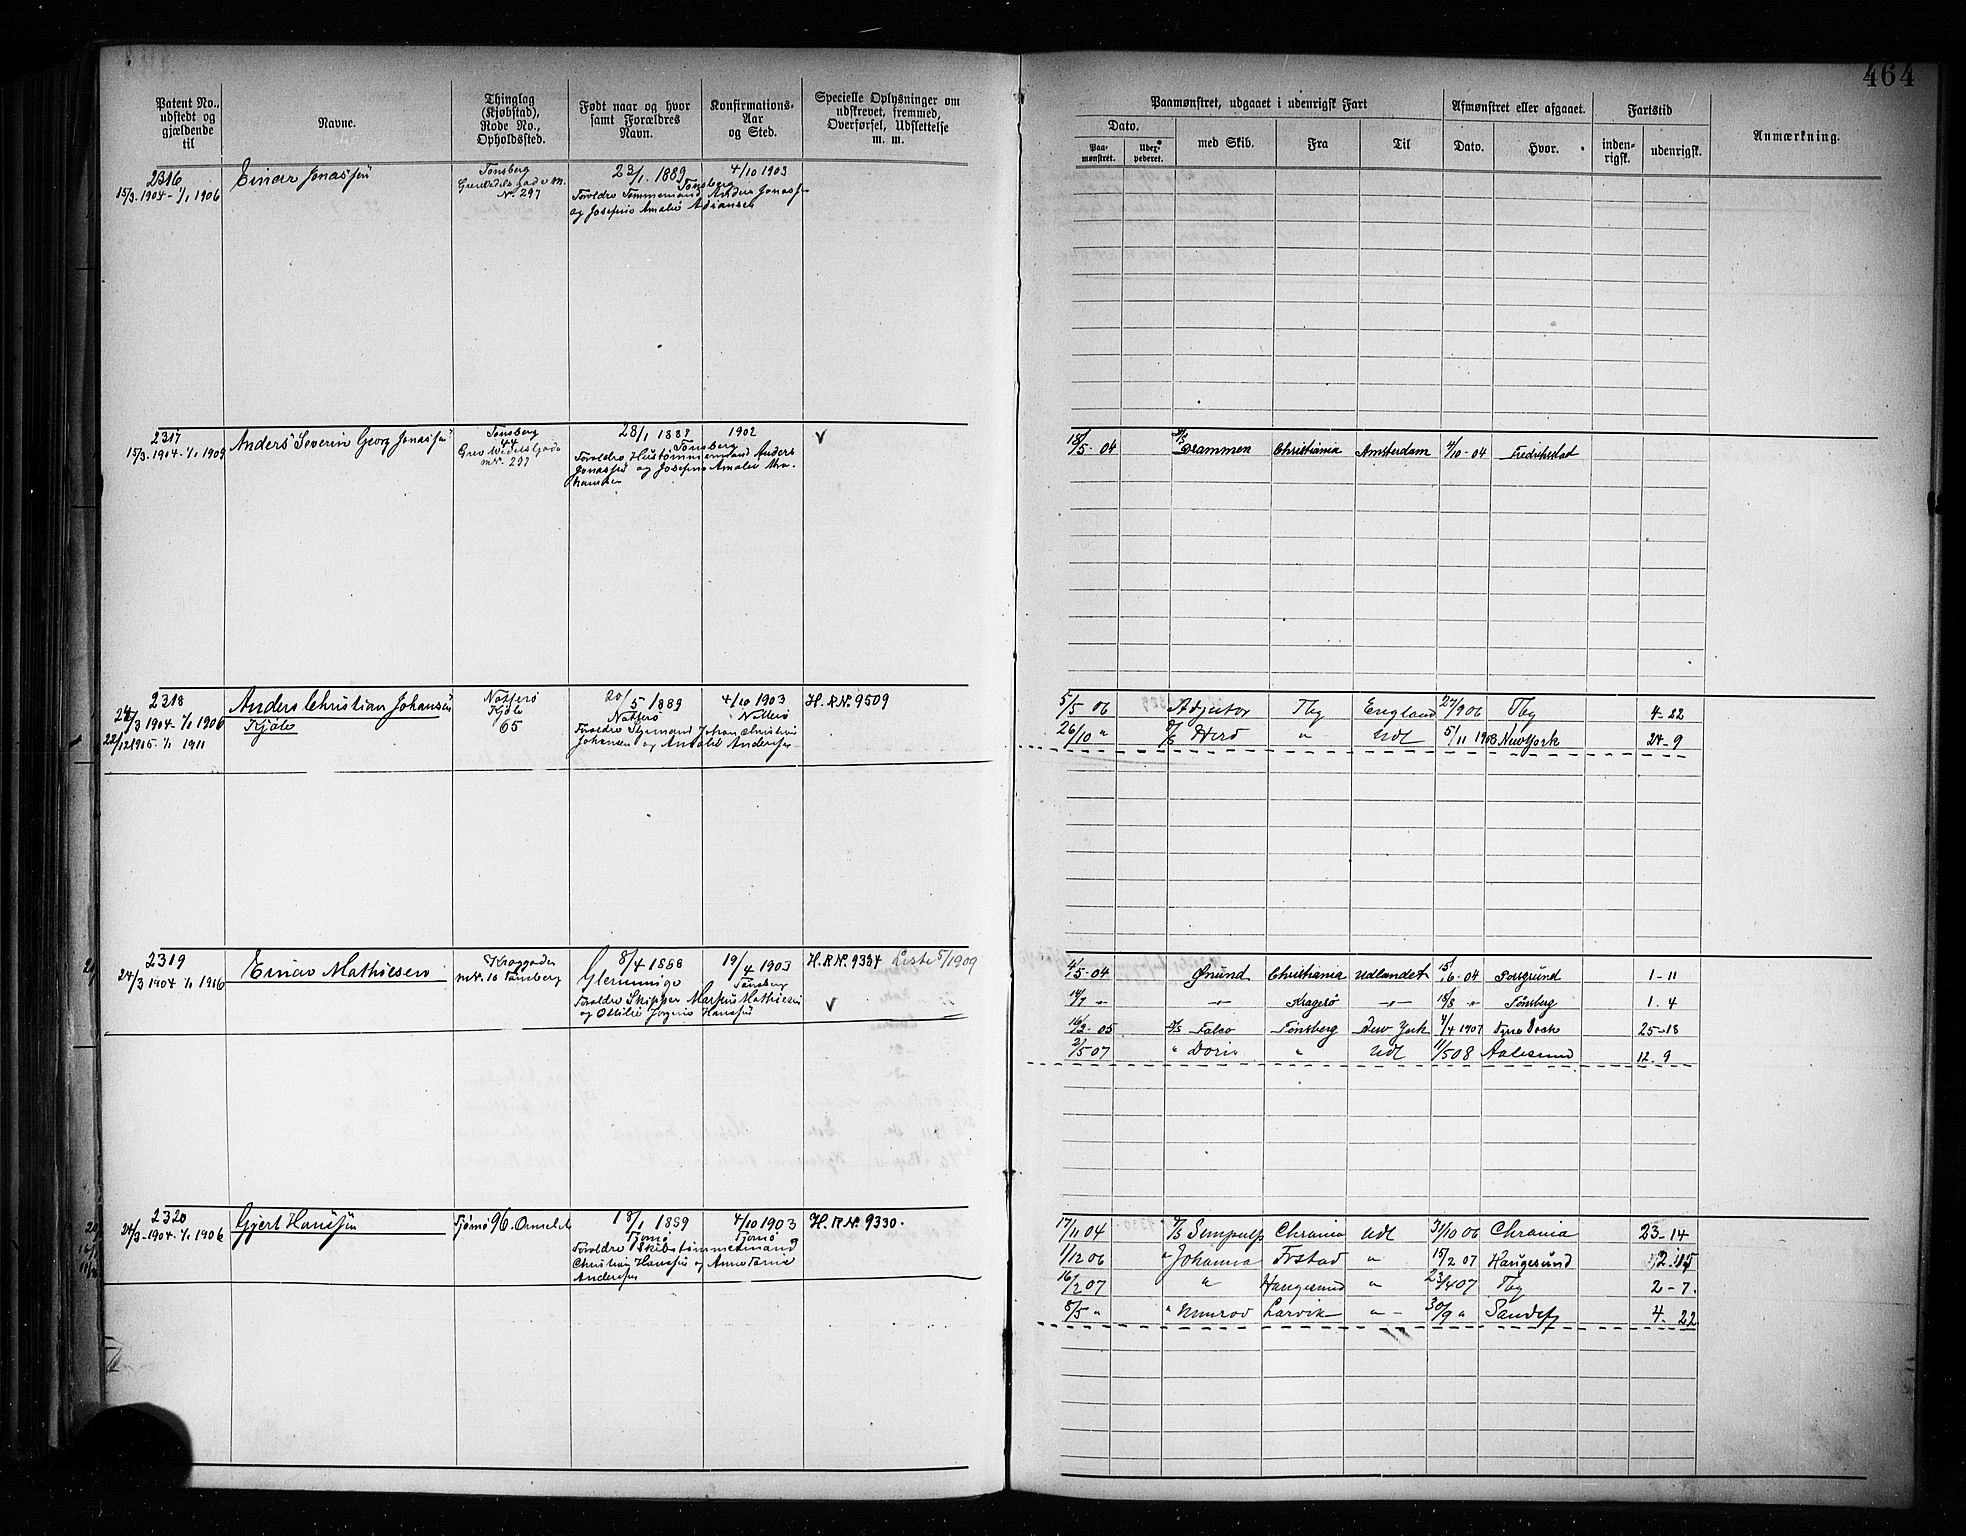 464
Patent No., udstedt og gjældende til
Navne.
Thinglag (Kjøbstad), Rode No., Opholdssted.
Født naar og hvor samt Forældres Navn.
Konfirmations-Aar og Sted.
Specielle Oplysninger om udskrevet, fremmed, Overførsel, Udslettelse m. m.
Paamønstret, udgaaet i udenrigsk Fart
Afmønstret eller afgaaet.
Fartstid
Anmærkning.
Dato.
Paamønstret.
med Skib.
Fra
Til
Dato.
Hvor.
indenrigsk.
udenrigsk.
2316
15/3-1904-1/1 1906
Einar Jonassen
Tønsberg
No. 297
23/1. 1889
Tønsberg
4/10 1903
Foreldre Tømmermand Anders Jonassen
og Josefine Amalie
2317
15/3-1904-1/1 1909
Anders Severin Georg Jonassen
Tønsberg
44
Grev Wedels Gade
nr. 297
28/1
Tønsberg
1902
Foreldre Hustømmermand Anders
Jonassen og Josefine Amalie
18/5-04
Drammen
Christiania
Amsterdam
4/10-04
Fredrikstad
2318
24/3 1904-1/1 1906
1/1 1911
Anders Christian Johansen
Kjøle
Nøtterø
Kjøle
65
20/5 1889
Nøtterø
Foreldre Sjømand Johan Christian
Johansen og Amalie Andersen
4/10 1903
Nøtterø
H. R. No. 9509
5/5 06
Adjutor
Tbg
England
27/9 06
Tbg
4-22
26/10 "
Herd
"
Udl
5/11 1908
New York
24-9
2319
24/3 1904 1/1 1916
Einar Mathiesen
nr. 10 Tønsberg
8/4 1888
Foreldre Skipper Markus Mathiesen
og Ottilie Jørgine Hansen
19/4 1903
Tønsberg
H. R. No. 9334
Liste 5/1909
4/5-04
Grund
Christiania
Udlandet
15/6-04
Porsgrund
1-11
14/7 -"-
-"-
Kragerø
-"-
15/8 "
Tønsberg
1. 4
16/2-05
Falco
Tønsberg
New York
4/4 1907
25-18
2/5-07
" Doris
"
Udl
11/5 08
Aalesund
12-9
2320
24/3-1904-1/1 1906
Gjert Hansen
Tjømø 96.
18/1 1889
Tjømø
Foreldre Skibstømmermand
Christian Hansen og Anne
Andersen
4/10 1903
Tjømø
H. R. No. 9330.
17/11 04
Chrania
Udl
31/10 06
Chrania
23-14
1/12 06
" Johanna
Frstad
"
15/2 07
Haugesund
2-15
16/2 07
"
Haugesund
"
23/4 07
Tbg
2-7.
8/5 "
" Nimrod
Larvik
"
30/9 "
Sandefj
4-22